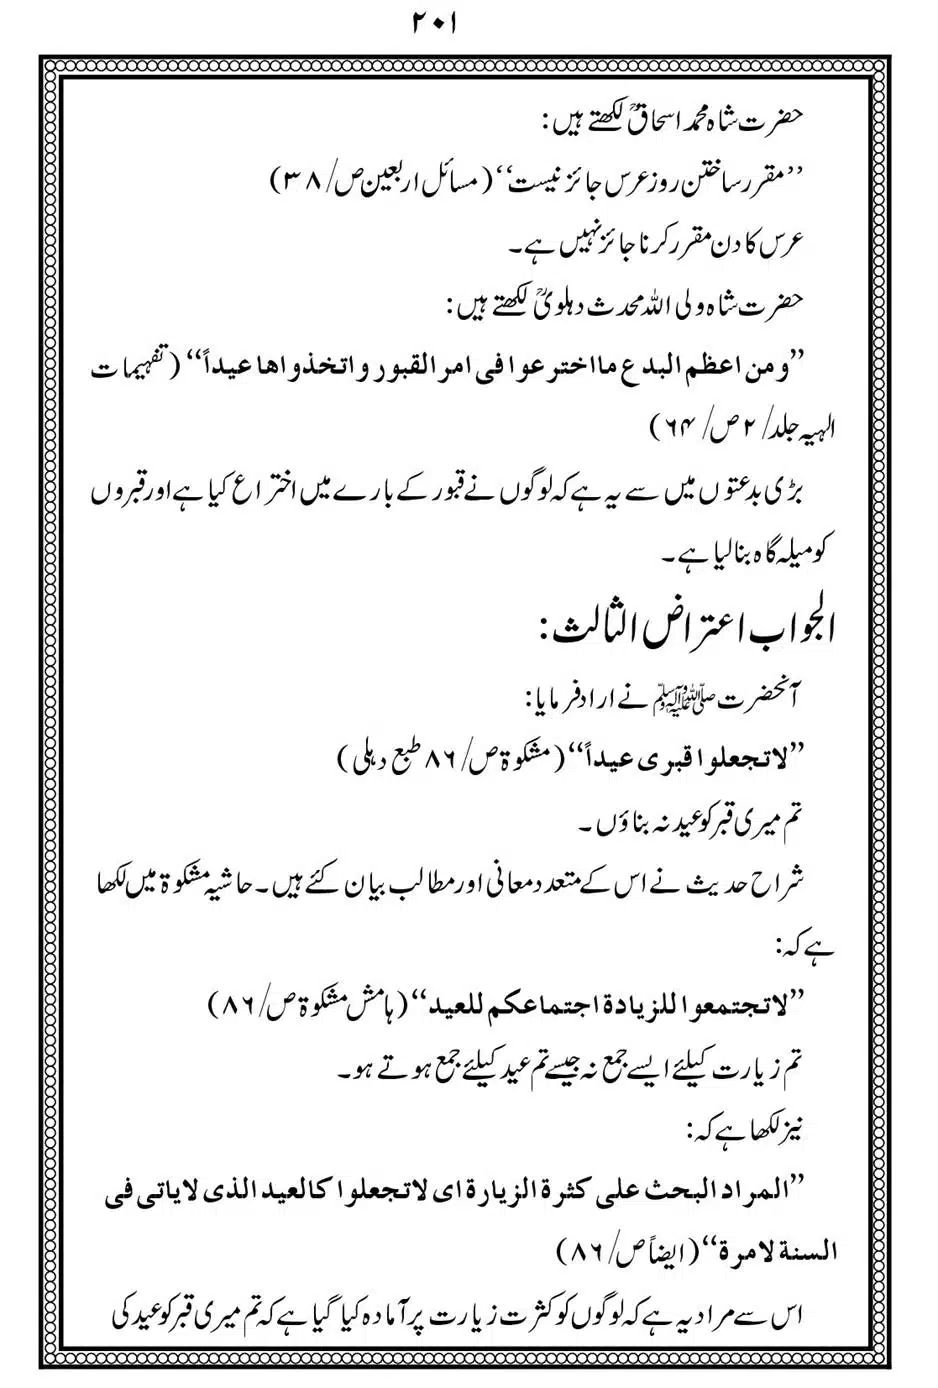 ۲۰۱
حضرت شاہ محمد اسحاقؒ لکھتے ہیں:
’’مقرر ساختن روز عرس جائز نیست‘‘ (مسائل اربعین ص/۳۸)
عرس کا دن مقرر کرنا جائز نہیں ہے۔
حضرت شاہ ولی اللہ محدث دہلویؒ لکھتے ہیں:
’’ومن اعظم البدع ما اخترعوا فی امر القبور و اتخذواھا عیداً‘‘ (تفہیمات
الٰہیہ جلد/۲ ص/۶۴)
بڑی بدعتوں میں سے یہ ہے کہ لوگوں نے قبور کے بارے میں اختراع کیا ہے اور قبروں
کو میلہ گاہ بنالیا ہے۔
الجواب اعتراض الثالث:
آنحضرت ﷺ نے ارادفرمایا:
’’لا تجعلوا قبری عیداً‘‘ (مشکوۃ ص/۸۶ طبع دہلی)
تم میری قبر کو عید نہ بناؤں۔
شراح حدیث نے اس کے متعدد معانی اور مطالب بیان کئے ہیں۔ حاشیہ مشکوۃ میں لکھا
ہے کہ:
’’لا تجتمعوا للزیادۃ اجتماعکم للعید‘‘ (ہامش مشکوۃ ص/۸۶)
تم زیارت کیلئے ایسے جمع نہ جیسے تم عید کیلئے جمع ہوتے ہو۔
نیز لکھا ہے کہ:
’’المراد البحث علی کثرۃ الزیارۃ ای لا تجعلوا کالعید الذی لا یاتی فی
السنۃ لامرۃ‘‘ (ایضاً ص/۸۶)
اس سے مراد یہ ہے کہ لوگوں کو کثرت زیارت پر آمادہ کیا گیا ہے کہ تم میری قبر کو عید کی